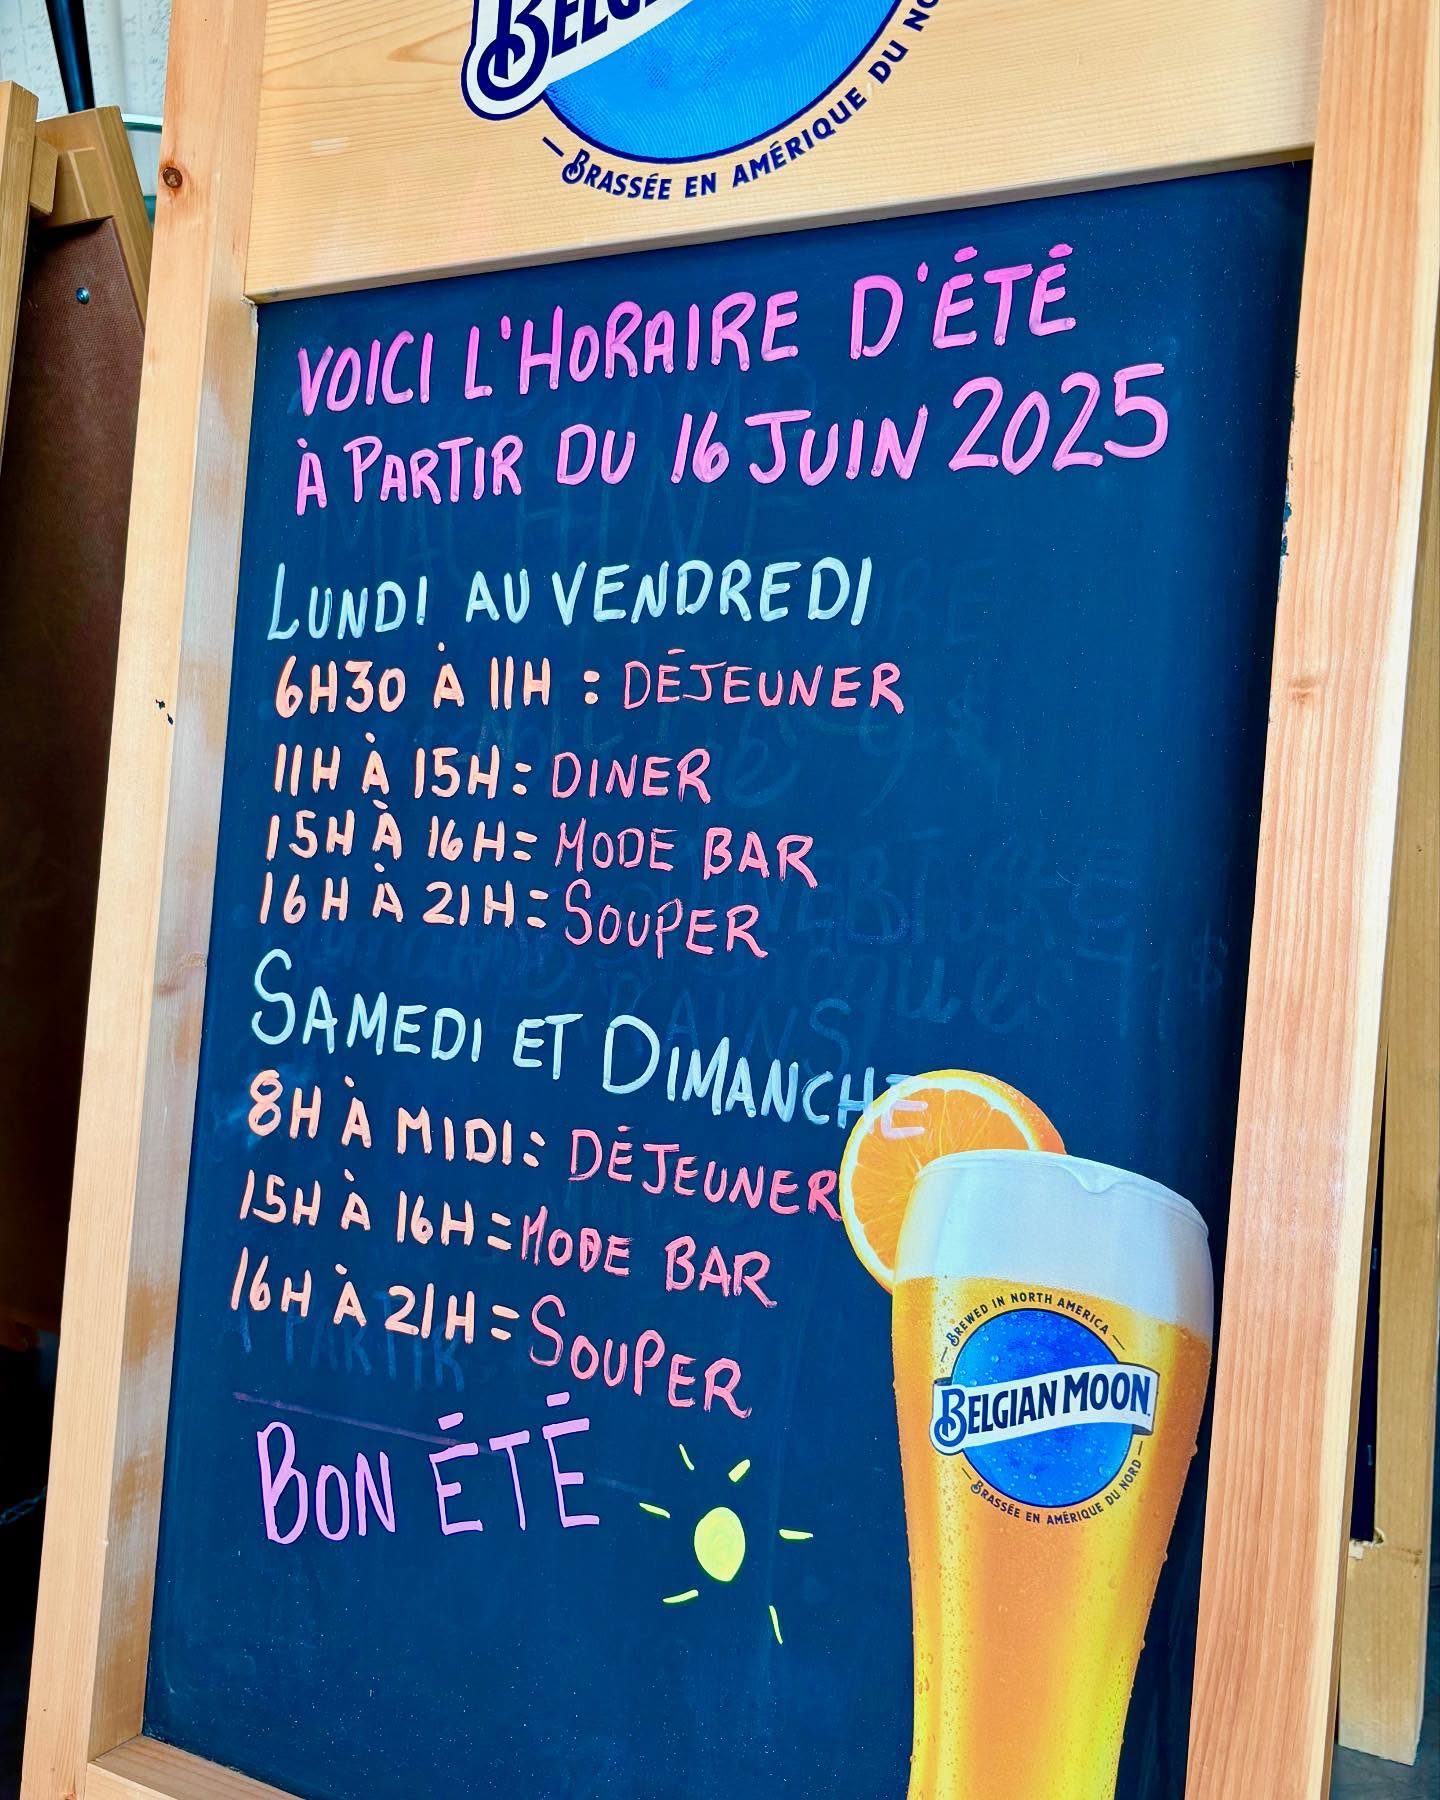 BELG
BRASSÉE EN AMÉRIQUE DU NO
VOICI L'HORAIRE D'ÉTÉ
À PARTIR DU 16 JUIN 2025
LUNDI AU VENDREDI
6H30 À 11H : DÉJEUNER
11H À 15H : DINER
15H À 16H : MODE BAR
16H À 21H : SOUPER
SAMEDI ET DIMANCHE
8H À MIDI : DÉJEUNER
15H À 16H : MODE BAR
16H À 21H : SOUPER
BON ÉTÉ
BREWED IN NORTH AMERICA
BELGIAN MOON
BRASSÉE EN AMÉRIQUE DU NORD